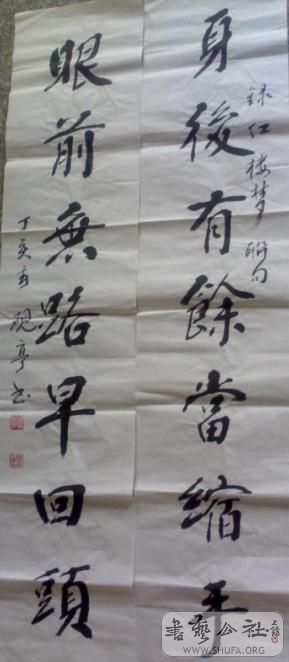 身後有餘當縮手
録红楼梦聯句
眼前無路早回頭
丁亥春硯亭书
書藝公社
WWW.SHUFA.ORG